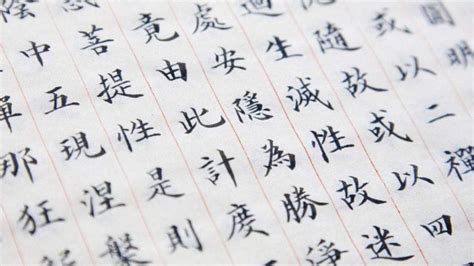 圓明
或以二禪
隨故或以四
迴生滅性故迷
處安隱為勝淨
竟由此計度
惑菩提性是則
陰中五現涅槃
禪那狂解